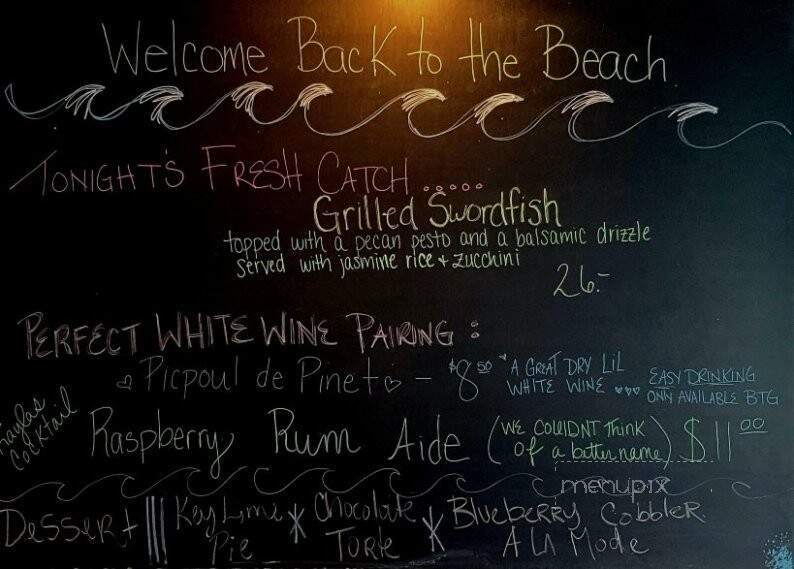 Welcome Back to the Beach
TONIGHT'S FRESH CATCH .....
Grilled Swordfish
topped with a pecan pesto and a balsamic drizzle
served with jasmine rice + zucchini
26.-
PERFECT WHITE WINE PAIRING :
Picpoul de Pinet - $8.50 "A GREAT DRY LIL
WHITE WINE EASY DRINKING
ONLY AVAILABLE BTG
Kaylas
Cocktail
Raspberry Rum Aide (WE COULDNT THINK
Of a better name) $11.00
menupix
Dessert ||| Key Lime
Pie
Chocolate
Torte
Blueberry Cobbler
A La Mode